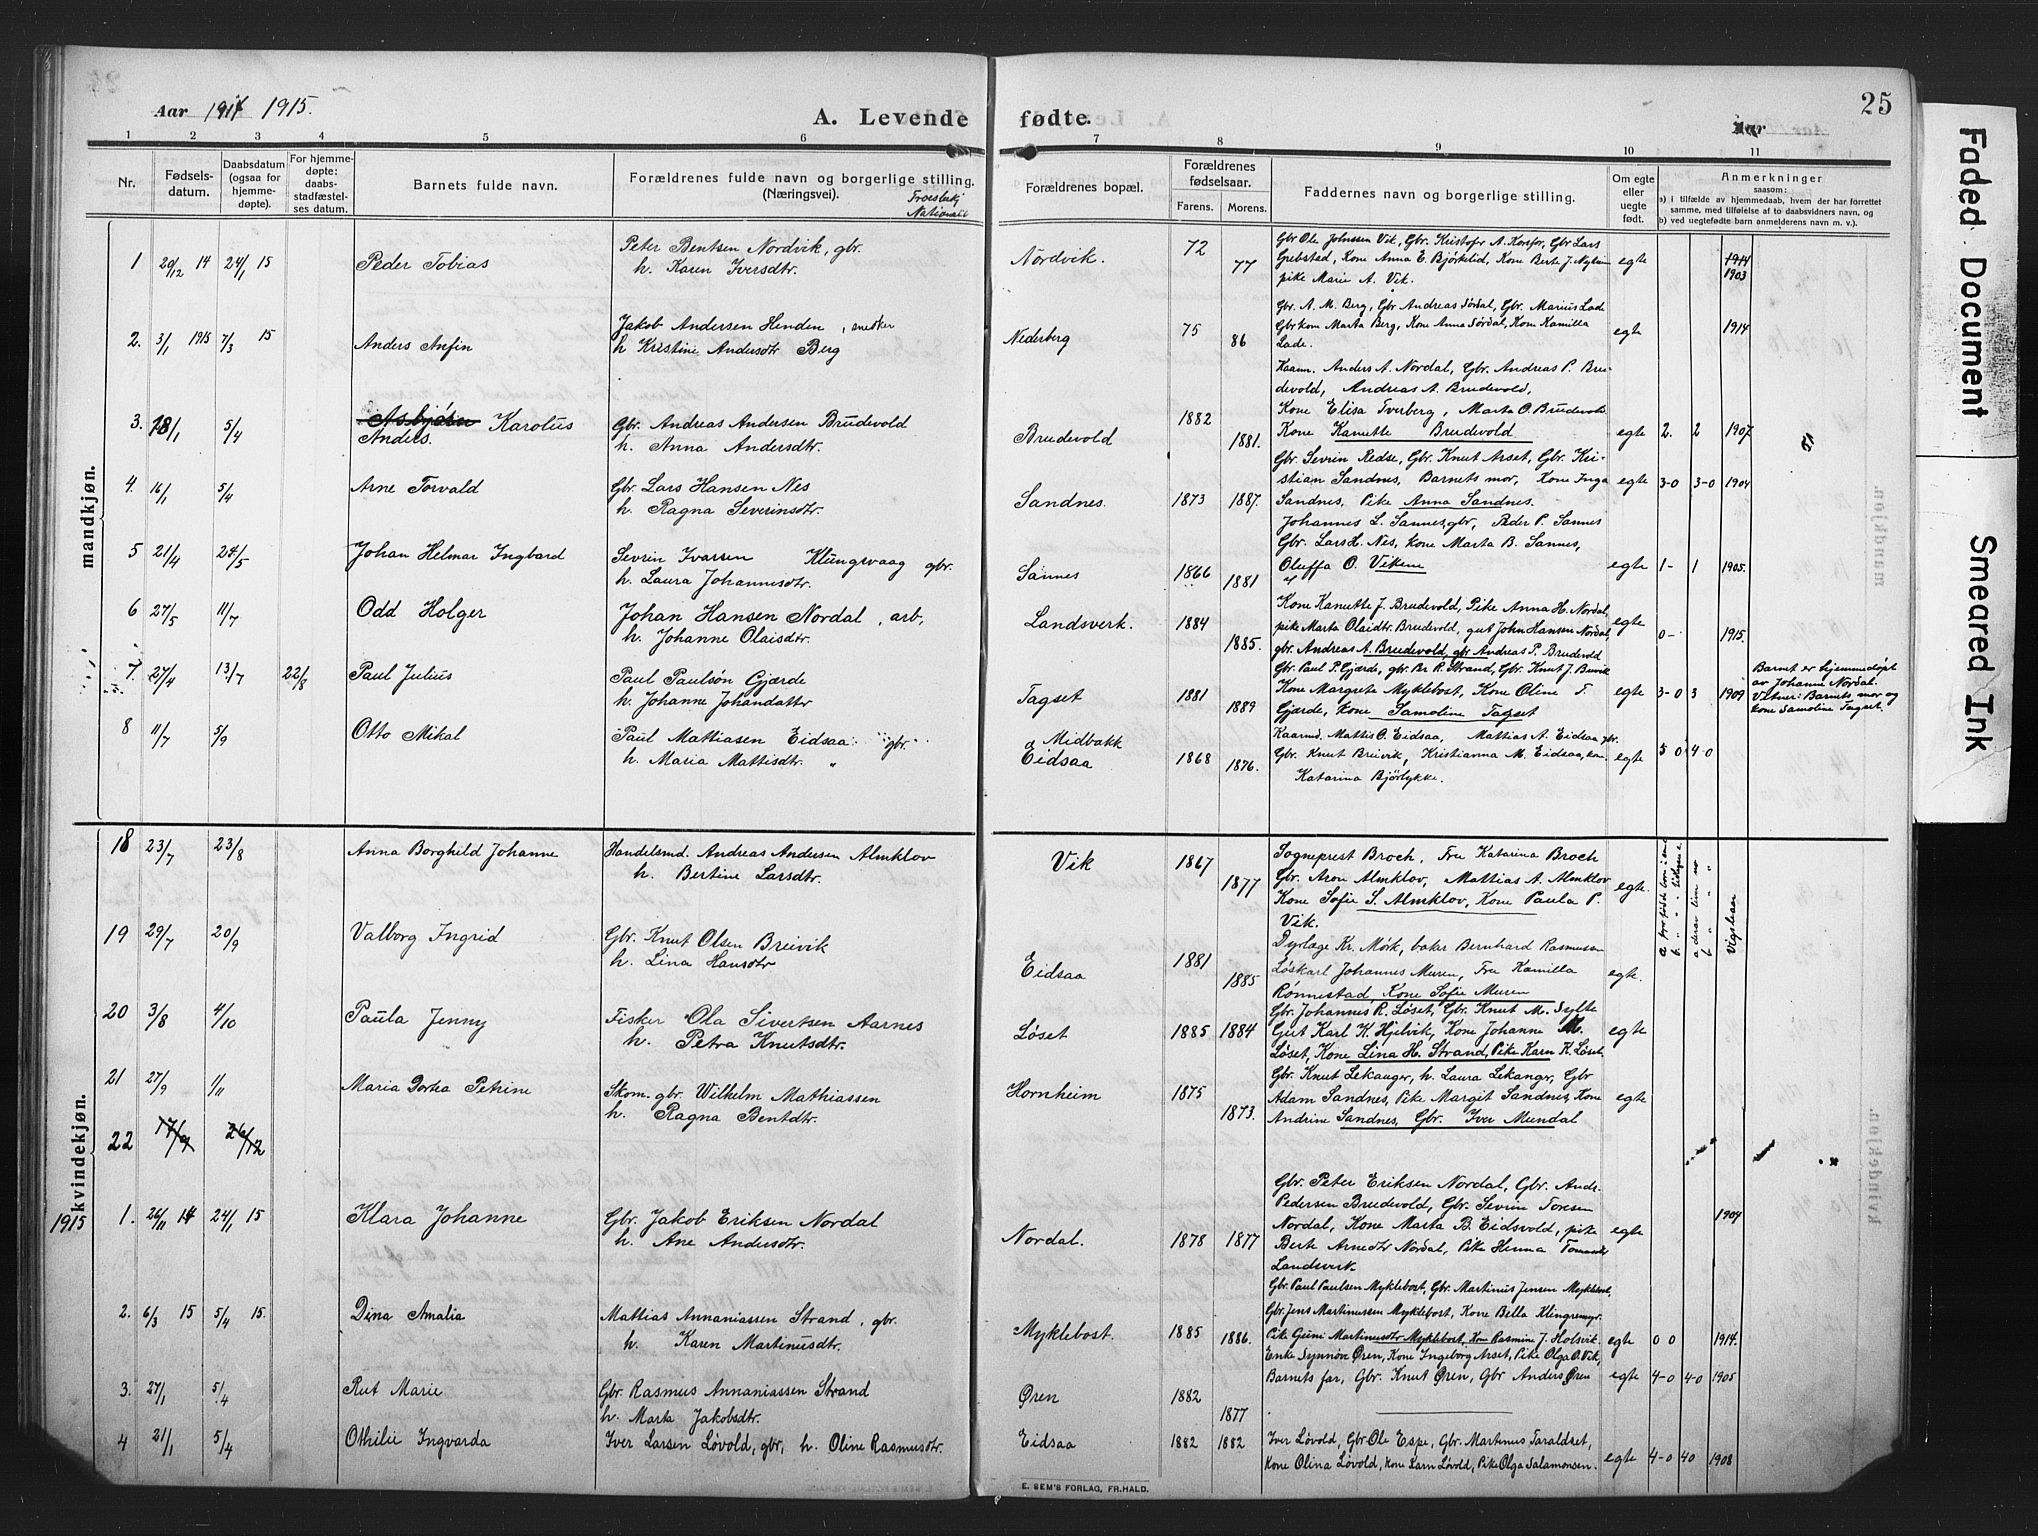 Aar 1914 1915.
A. Levende fødte.
Aar
25
1 2 3 4 5 6 7 8 9 10 11
Nr.
Fødsels-
datum.
Daabsdatum
(ogsaa for
hjemme-
døpte).
For hjemme-
døpte:
daabs-
stadfæstel-
ses datum.
Barnets fulde navn.
Forældrenes fulde navn og borgerlige stilling.
(Næringsvei).
Troesbekj
Nationalit
Forældrenes bopæl.
Forældrenes
fødselsaar.
Farens. Morens.
Faddernes navn og borgerlige stilling.
Om egte
eller
uegte
født.
Anmerkninger
saasom:
a) i tilfælde av hjemmedaab, hvem der har forrettet
samme, med tilføielse af to daabsvidners navn, og
b) ved uegtefødte barn anmelderens navn m. v.).
mandkjøn.
1 20/12 14 24/1 15 Peder Tobias
Peter Bentsen Nordvik, gbr.
h. Karen Iversdtr.
Nordvik. 72 77
Gbr Ole Johnssen Vik, Gbr. Kristofer A. Korsfor, Gbr Lars
Grebstad, Kone Anna E. Bjørkelid, Kone Berte J.
pike Marie A. Vik.
egte 1914
1903
2. 3/1 1915 7/3 15 Anders Anfin
Jakob Andersen Henden, snedker
h Kristine Andersdtr Berg
Nederberg 75 86
Gbr. A. M. Berg, Gbr Andreas Sørdal, Gbr. Marius Lade
Gbr kom Marta Berg, Kone Anna Sørdal, Kone Kamilla
Lade.
egte 1914
3. 18/1 5/4 Asbjørn Karolus
Anders.
Gbr. Andreas Andersen Brudevold
h. Anna Andersdtr.
Brudevold 1882 1881.
Kaarm. Anders A. Nordal, Gbr. Andreas P. Bru-
devold, Andreas A. Brudevold,
Kone Elisa Tverberg, Marta O. Brudevold
Kone Kanutte Brudevold
egte 2. 2 1907
4. 16/1 5/4 Arne Torvald
Gbr. Lars Hansen Nes
h. Ragna Severinsdtr.
Sandnes. 1873 1887.
Gbr. Sevrin Redse, Gbr. Knut Arset, Gbr. Kri-
stian Sandnes, Barnets mor, Kone Inga
Sandnes, Pike Anna Sandnes.
egte 3-0 3-0 1904
5 21/4 24/5 Johan Helmar Ingbard
Sevrin Ivarsen Klungsvaag gbr.
h. Laura Johannesdtr.
Sannes 1866 1881
Johannes L. Sannes, gbr, Peder P. Sannes
Gbr. Lars H. Nes, kone Marta B. Sannes,
Oluffa O. Vikene
egte 1- 1 1905.
6 27/5 11/7 Odd Holger
Johan Hansen Nordal, arb,
h. Johanne Olaisdtr.
Landsverk. 1884 1885.
Kone Kanutte J. Brudevold, Pike Anna H. Nordal,
pike Marta Olaidtr. Brudevold, gut John Hansen Nordal,
gbr. Andreas A. Brudevold, gbr Andreas P. Brudevold
egte 0- 1915.
7. 27/4 13/7 22/8 Paul Julius
Paul Paulsøn Gjærde
h. Johanne Johandatter
Tagset 1881 1889
Gbr. Paul P. Gjærde, gbr Br. R. Strand, Gbr. Knut J.
Kone Margrete Myklebost, Kone Oline T.
Gjærde, kone Samoline Tagset
egte 3-0 3 1909
Barnet er hjemmedøpt
av Johanne Nordal.
Vitner: Barnets mor og
kone Samoline Tagset.
8 11/7 5/9 Otto Mikal
Paul Mattiasen Eidsaa gbr.
h. Maria Mattisdtr. "
Midbakk
Eidsaa 1868 1876.
Kaarmd. Mattis O. Eidsaa, Mattias A. Eidsaa, gbr.
Gbr. Knut Breivik, Kristianna M. Eidsaa, kone
Katarina Bjørlykke.
egte 5 0 4 0
kvindekjøn.
18 23/7 23/8 Anna Borghild Johanne
Handelsmd. Andreas Andersen Almklov
h. Bertine Larsdtr.
Vik 1867 1877
Sogneprest Broch, Fru Katarina Broch
Gbr. Aron Almklov, Mattias A. Almklov
Kone Sofie S. Almklov, Kone Paula P.
Vik.
egte.
Vigselsaar
19 29/7 20/9 Valborg Ingrid
Gbr. Knut Olsen Breivik
h. Lina Hansdtr
Eidsaa 1881 1885
Dyrlæge Kr. Mørk, baker Bernhard Rasmussen
Løskarl Johannes Muren, Fru Kamilla
Rønnestad, Kone Sofie Muren
egte.
20 3/8 4/10 Paula Jenny
Fisker Ola Sivertsen Aarnes
h. Petra Knutsdtr.
Løset 1885 1884
Gbr. Johannes R. Løset, Gbr. Knut M. Sylte
Gut Karl K. Hjelvik, Kone Johanne M.
Løset, Kone Lina H. Strand, Pike Karn K. Løset,
egte
21 27/9 1/11 Maria Dortea Petrine
Skom. gbr. Wilhelm Mathiassen
h. Ragna Bentdtr.
Hornheim 1875 1873.
Gbr. Knut Lekanger, h. Laura Lekangr, Gbr
Adam Sandnes, Pike Margit Sandnes, Kone
Andrine Sandnes, Gbr. Iver Mundal
egte
22 17/9 26/12
1915 1. 26/11 14 24/1 15 Klara Johanne
Gbr. Jakob Eriksen Nordal
h. Ane Andersdtr.
Nordal. 1878 1877
Gbr. Peter Eriksen Nordal, Gbr. Andr.
Pedersen Brudevold, Gbr. Sevrin Toresen
Nordal, Kone Marta B. Eidsvold, pike
Berte Arnedtr Nordal, Pike Henna
Landsverk
egte 1904
2. 6/3 15 5/4 15. Dina Amalia
Mattias Annaniassen Strand, gbr.
h. Karen Martinusdtr.
Myklebost. 1885 1886.
Gbr. Paul Paulsen Myklebost, Gbr. Martinus Jensen Myklebost,
Gbr. Jens Martinussen Myklebost, Kone Bella Klingremyr.
Pike Guni Martinusdtr Myklebost, Kone Rasmine J. Holsvik.
egte 0 0 1914.
3. 27/1 5/4 Rut Marie
Gbr. Rasmus Annaniassen Strand
h. Marta Jakobsdtr.
Øren 1882 1877
Enke Synnøve Øren, Kone Ingeborg Arset, Pike Olga O. Vik,
Barnets far, Gbr. Knut Øren, Gbr Anders Øren
egte 4-0 4-0 1905
4 21/1 5/4 Othilie Ingvarda
Iver Larsen Løvold, gbr, h. Oline Rasmusdtr.
Eidsaa 1882 1882
Iver Løvold, Gbr Ole Espe, Gbr. Martinus Taraldset,
Kone Olina Løvold, Kone Karn Løvold, Pike Olga Salamonsen.
egte 4-0 40 1908
E. SEM'S FORLAG, FR.HALD.
Faded Document
Smeared Ink